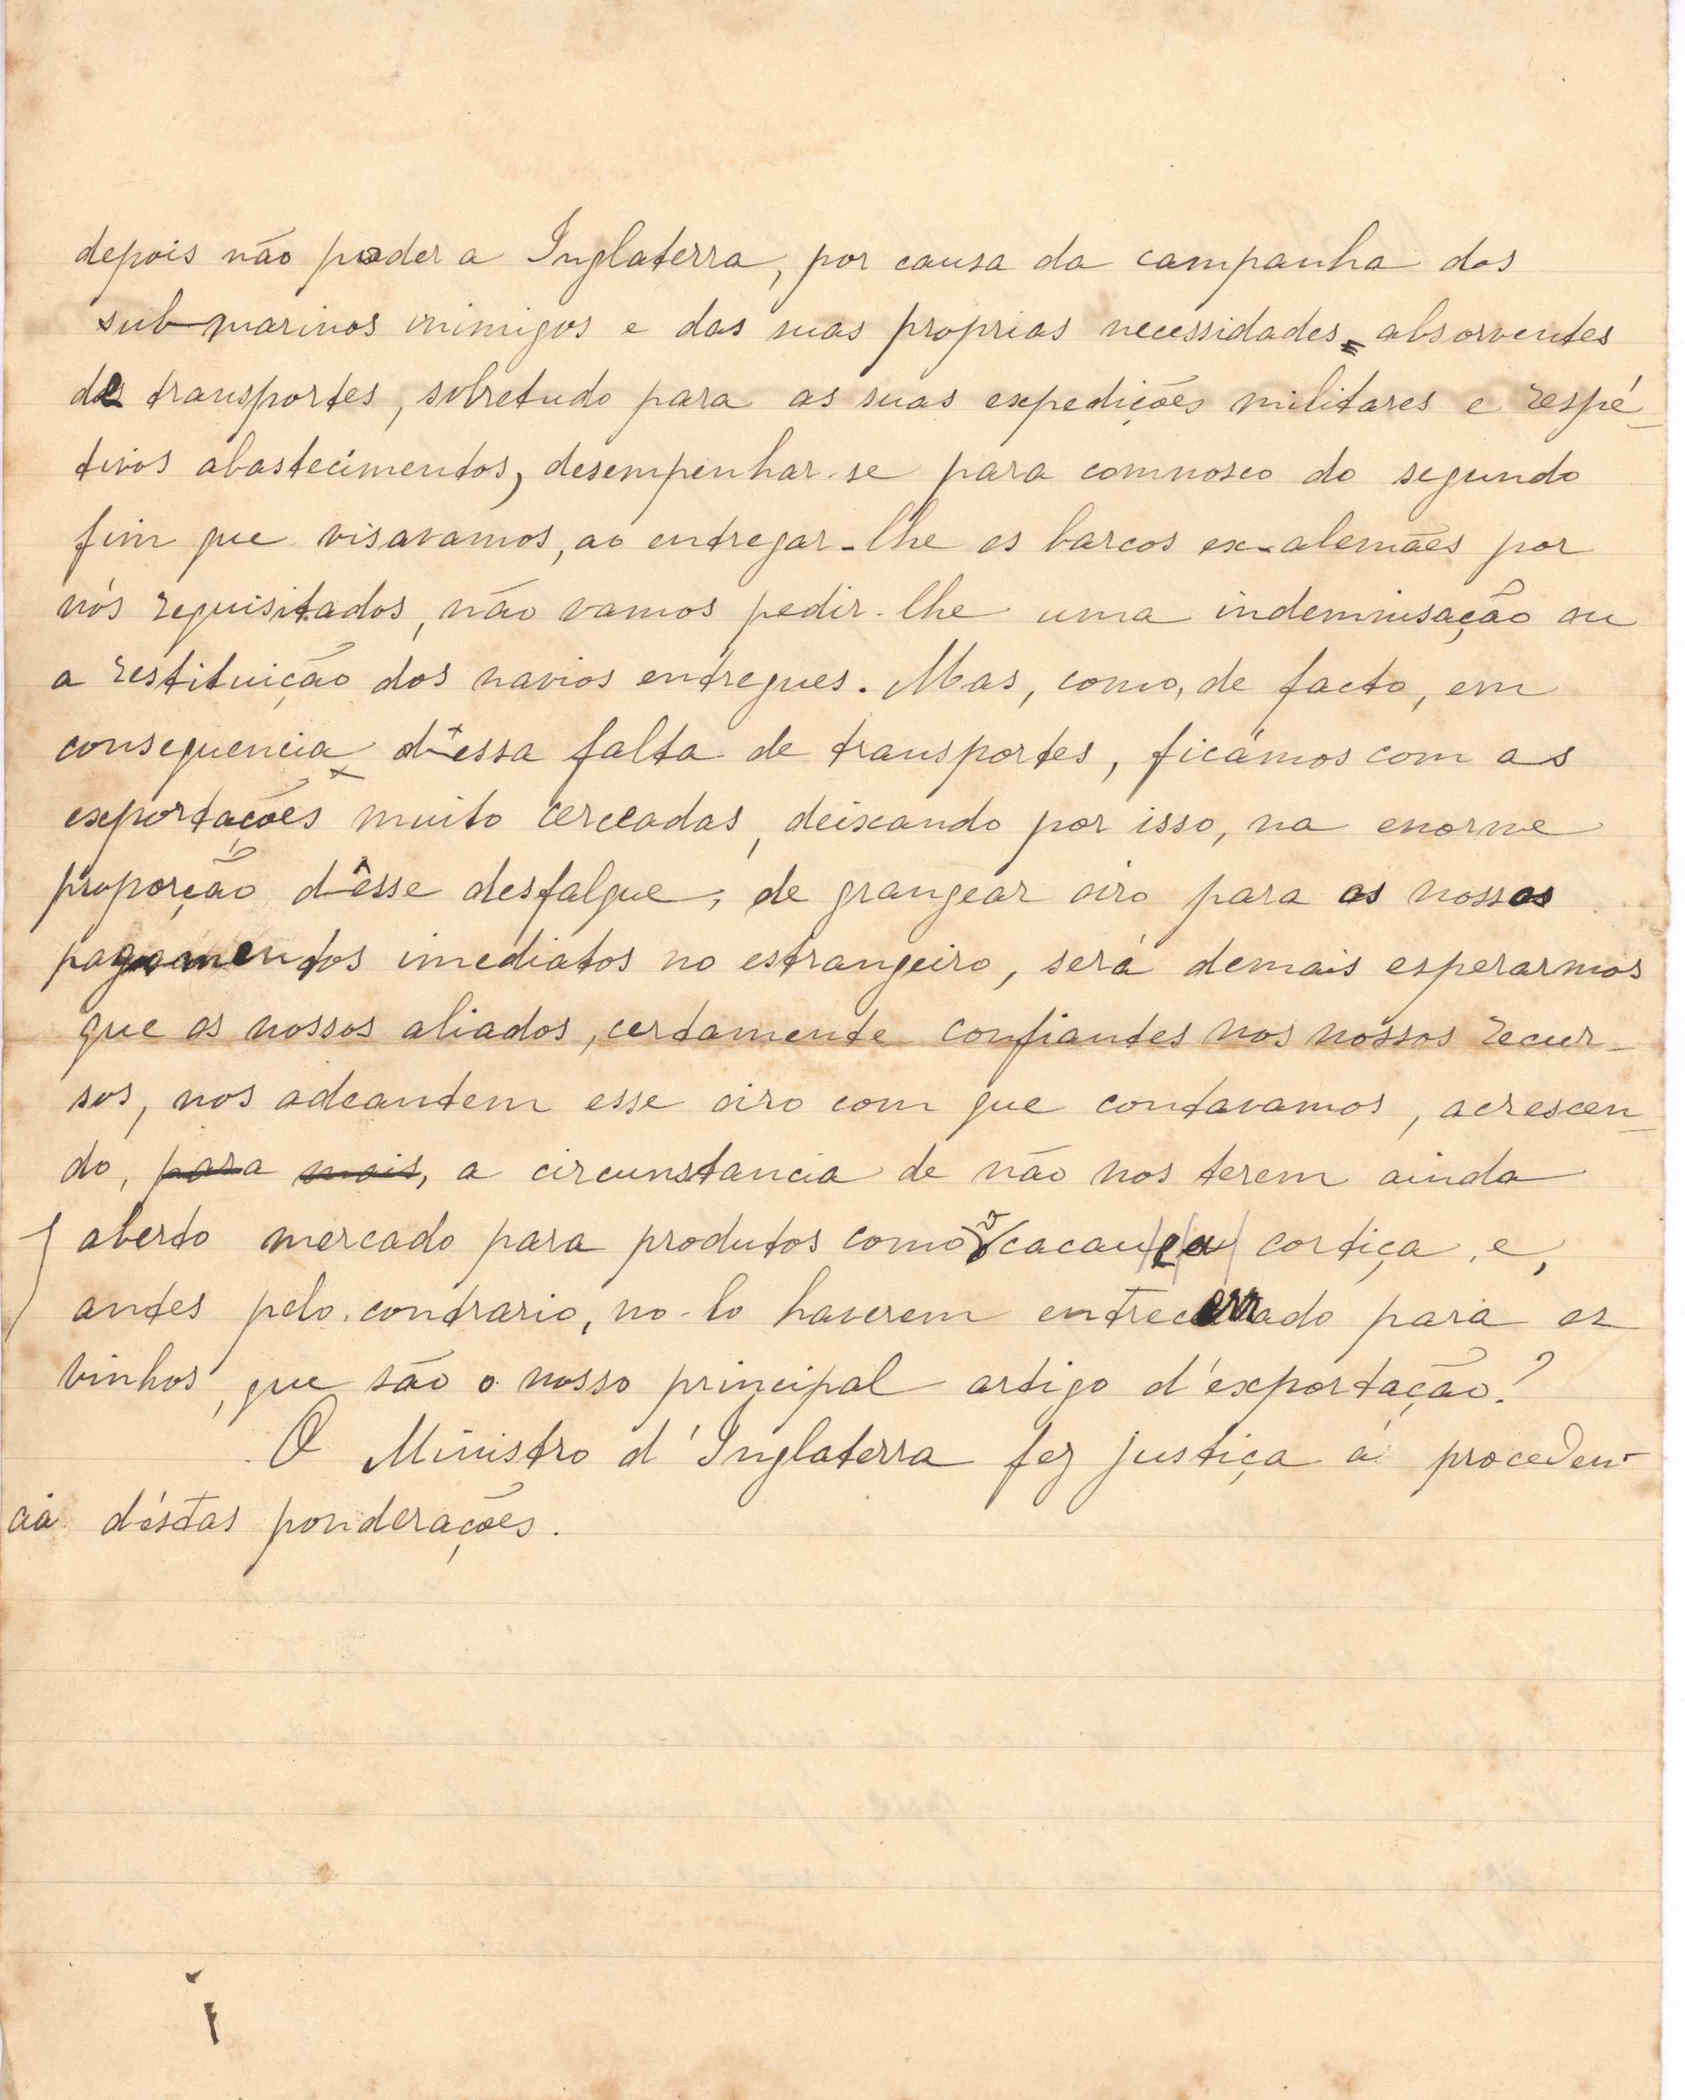 depois não poder a Inglaterra, por causa da campanha dos
submarinos inimigos e das suas proprias necessidades absorventes
de transportes, sobretudo para as suas expedições militares e respé-
tivos abastecimentos, desempenhar-se para comnosco do segundo
fim que visavamos, ao entregar-lhe os barcos ex-alemães por
nós requisitados, não vamos pedir-lhe uma indemnisação ou
a restituição dos navios entregues. Mas, como, de facto, em
consequencia d'essa falta de transportes, ficámos com as
exportações muito cerceadas, deixando por isso, na enorme
proporção d'êsse desfalque, de grangear oiro para os nossos
pagamentos imediatos no estrangeiro, será demais esperarmos
que os nossos aliados, certamente confiantes nos nossos recur-
sos, nos adeantem esse oiro com que contavamos, acrescen-
do, para mais, a circunstancia de não nos terem ainda
aberto mercado para produtos como o cacau e a cortiça, e,
antes pelo contrario, no-lo haverem entrecerrado para os
vinhos, que são o nosso principal artigo d'exportação?
O Ministro d'Inglaterra fez justiça á proceden-
cia d'éstas ponderações.